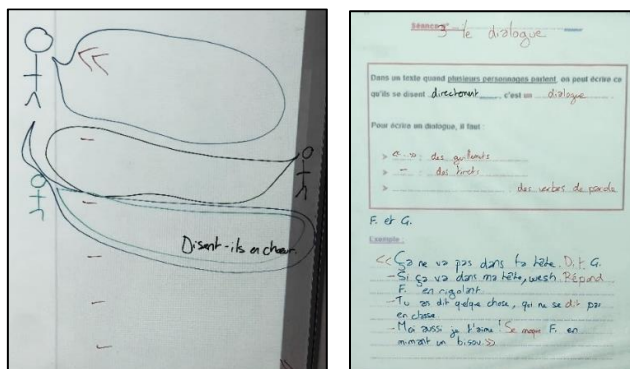 <<
-
Disent-ils en chœur
-
-
-
Séance 3 - le dialogue
Dans un texte quand plusieurs personnages parlent, on peut écrire ce
qu'ils se disent directement, c'est un dialogue.
Pour écrire un dialogue, il faut :
> « » : des guillemets
> - : des tirets
> des verbes de parole
F. et G.
Exemple :
<< Ça ne va pas dans ta tête. Dit G.
- Si ça va dans ma tête, wesh. Répond
F. en rigolant
- Tu as dit quelque chose, qui ne se dit pas
en classe
- Moi aussi je t'aime ! Se moque F. en
mimant un bisou >>